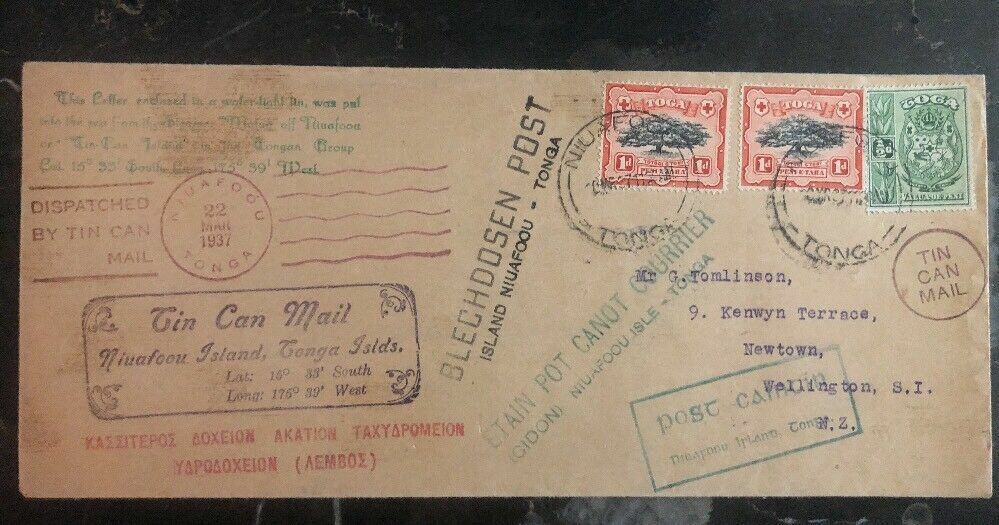 This Letter enclosed in a water-tight tin, was put
into the sea from the off Niuafoou
or "Tin-Can Island" in the Tongan Group
15° 33' South, 175° 39' West.
DISPATCHED
BY TIN CAN
MAIL
NIUAFOOU
22
MAR
1937
TONGA
Tin Can Mail
Niuafoou Island, Tonga Islds.
Lat: 15° 33' South
Long: 175° 39' West
ΚΑΣΣΙΤΕΡΟΣ ΔΟΧΕΙΟΝ ΑΚΑΤΙΟΝ ΤΑΧΥΔΡΟΜΕΙΟΝ
ΥΔΡΟΔΟΧΕΙΟΝ (ΛΕΜΒΟΣ)
BLECHDOSEN POST
ISLAND NIUAFOOU - TONGA
ETAIN POT CANOT COURRIER
(GIDON) NIUAFOOU ISLE - TONGA
TOGA
1d 1d
PENI E TAHA
TOGA
1d 1d
PENI E TAHA
TOGA
NIUAFOOU
TONGA
TONGA
TIN
CAN
MAIL
Mr G Tomlinson,
9. Kenwyn Terrace,
Newtown,
Wellington, S.I.
N.Z.
post
Niuafoou Island, Tonga